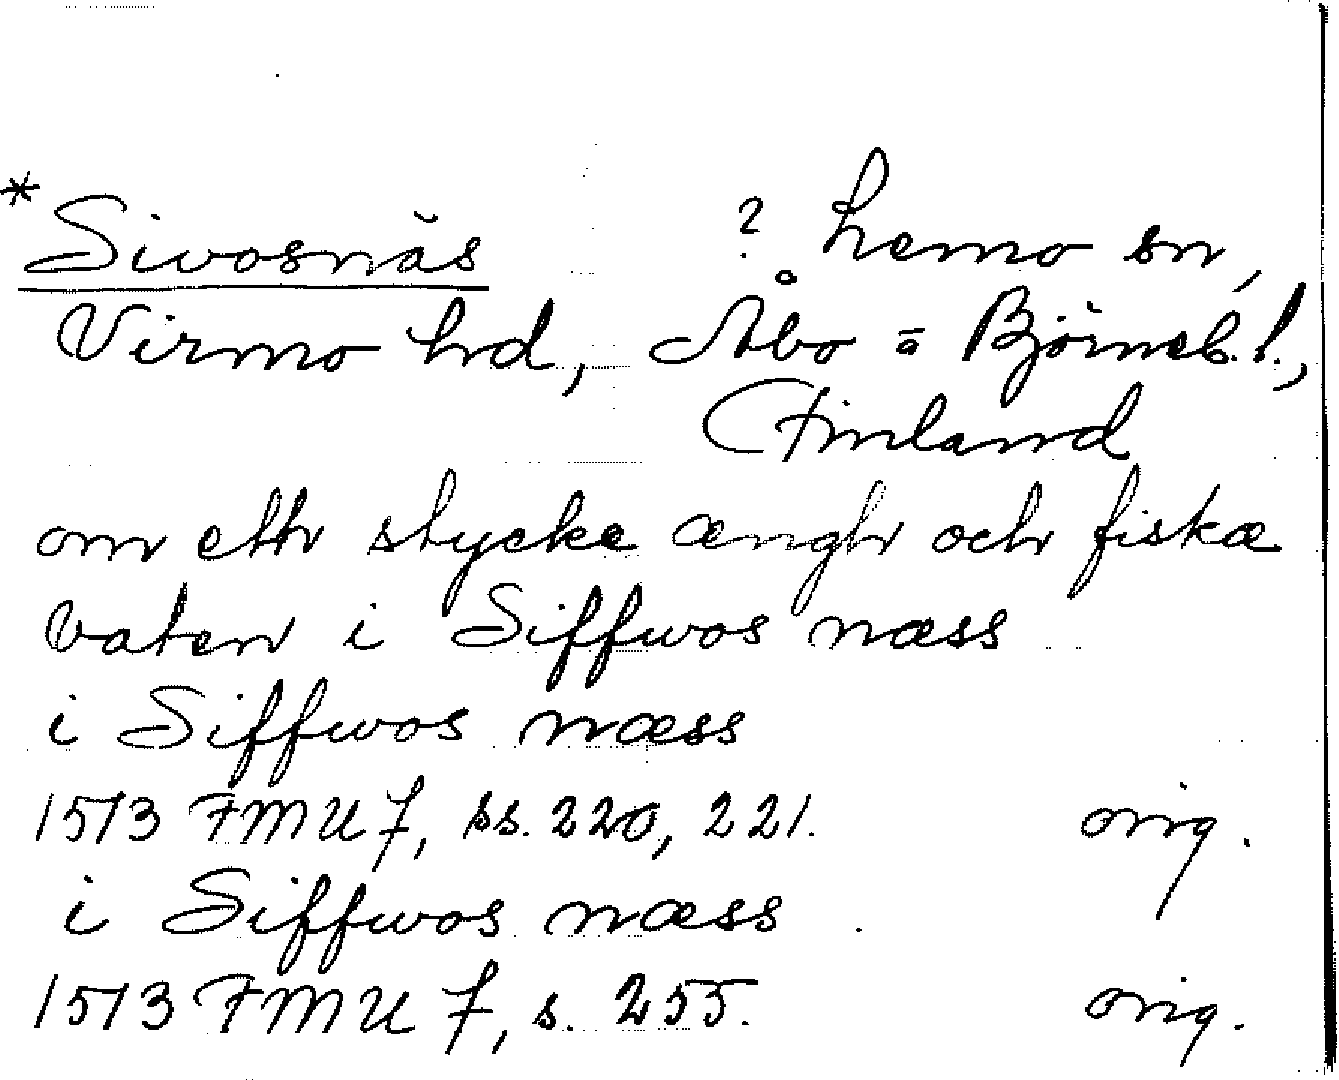 * Sivosnäs ? Lemo sn,
Virmo hrd, Åbo = Björneb. l.,
Finland
om ett stycke ængh och fiskæ
vaten i Siffwos næss
i Siffwos næss
1513 FMU 7, ss. 220, 221. orig.
i Siffwos næss
1513 FMU 7, s. 255. orig.